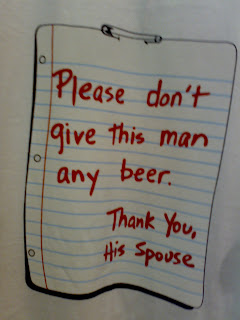 Please don't
give this man
any beer.
Thank You,
His Spouse